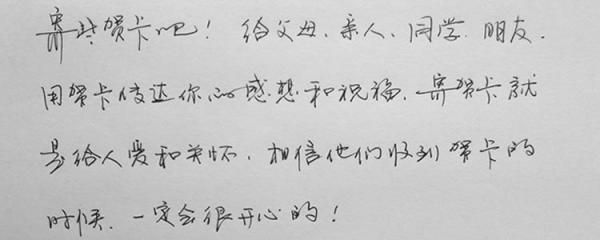 寄些贺卡吧！给父母、亲人、同学、朋友.
用贺卡传达你的感想和祝福。寄贺卡就
是给人爱和关怀，相信他们收到贺卡的
时候，一定会很开心的！